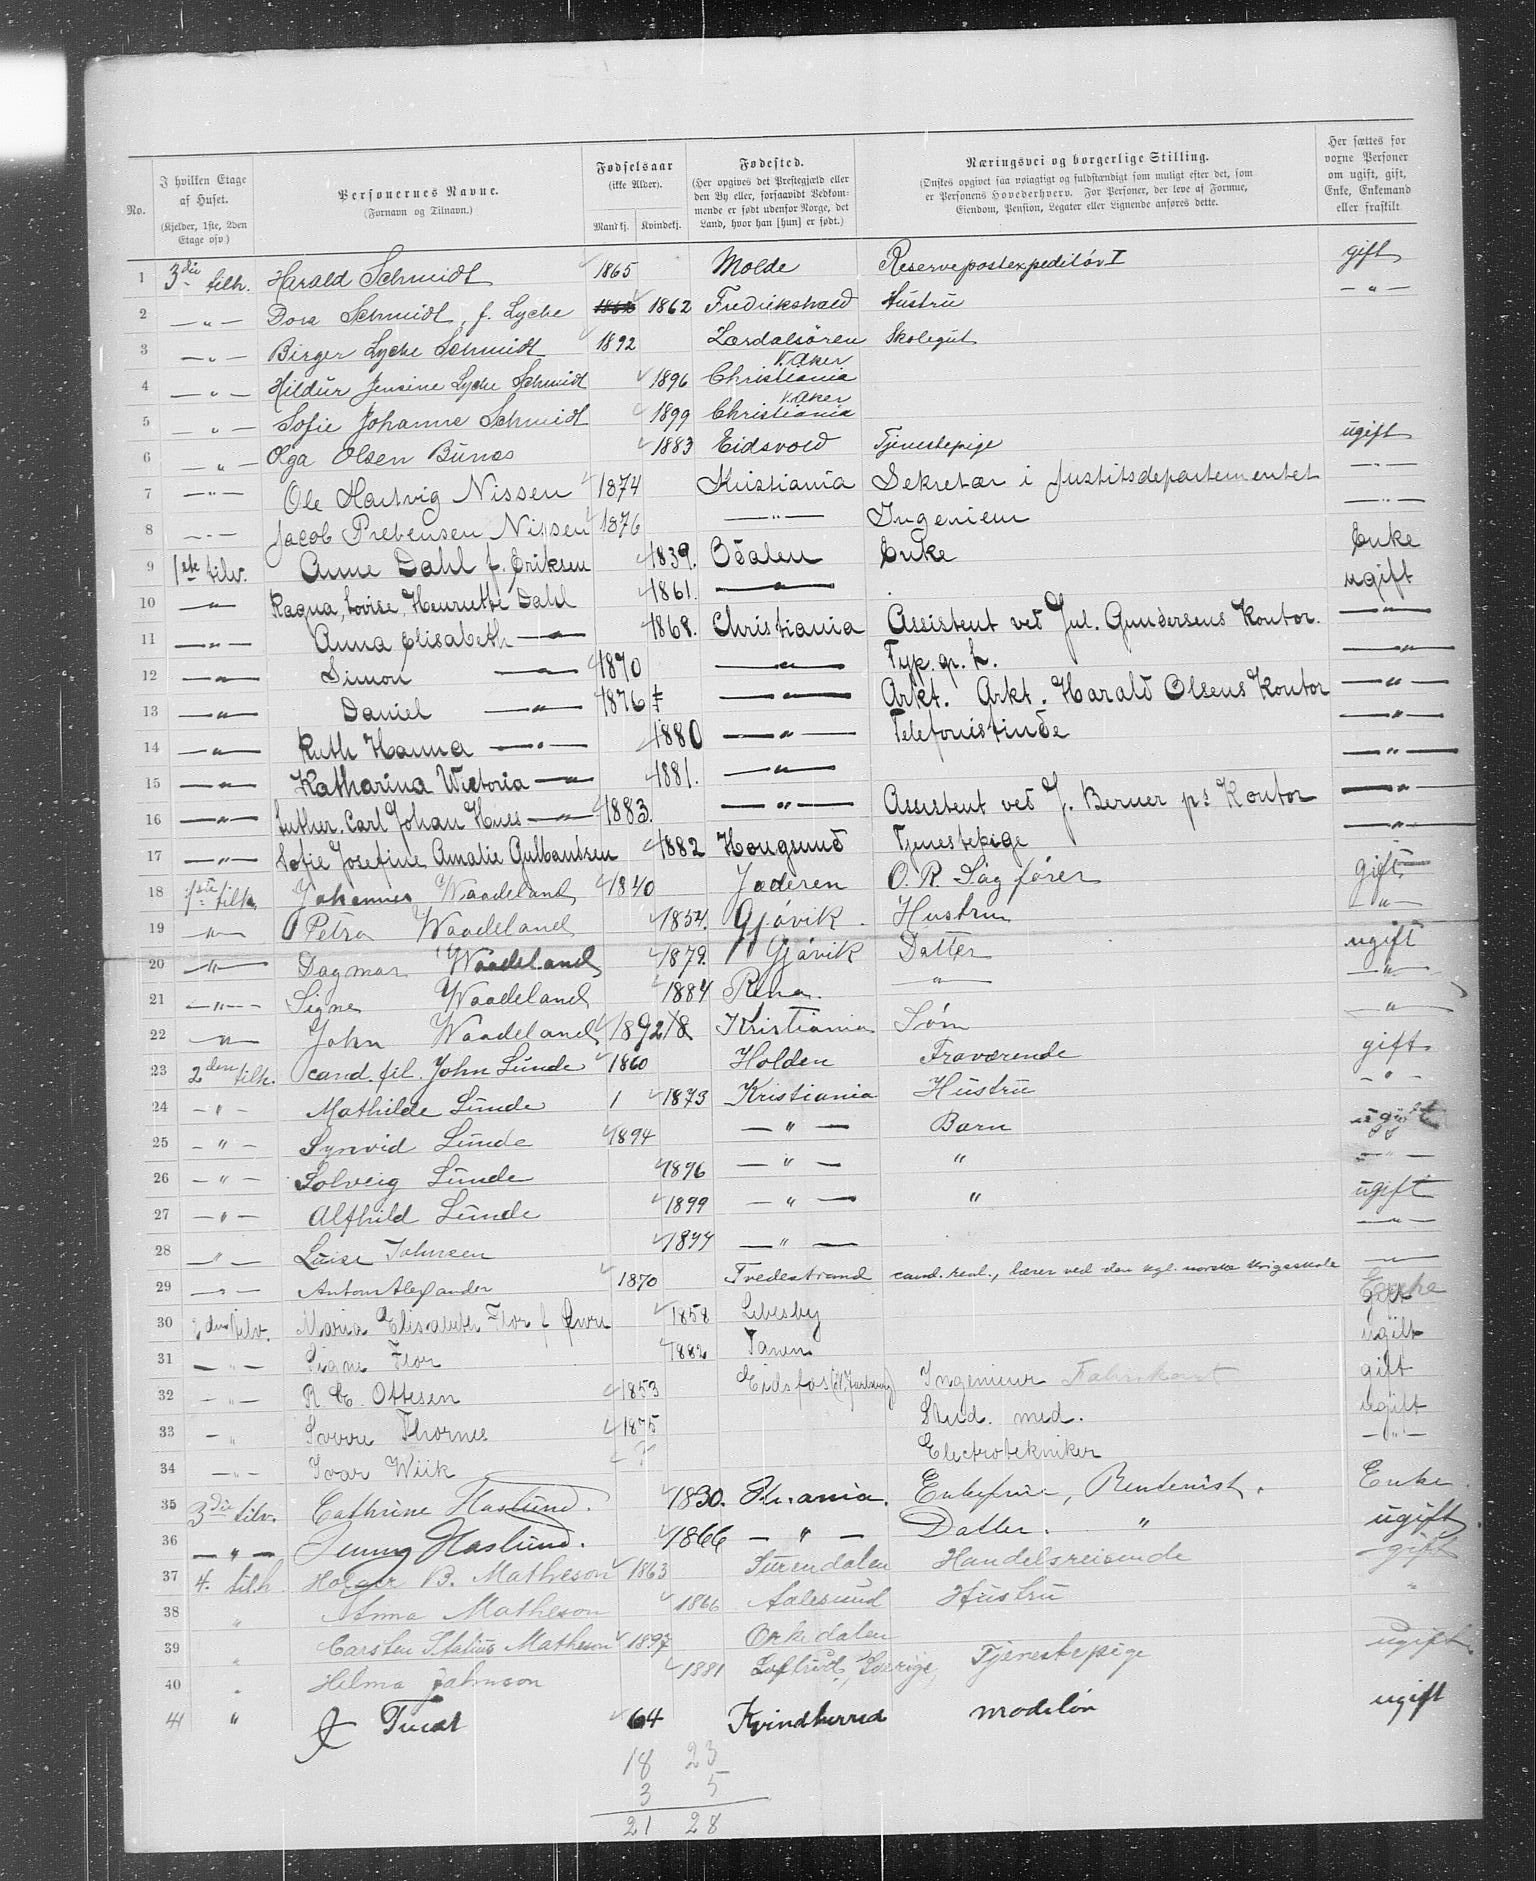 No. | I hvilken Etage af Huset. (Kjelder, 1ste, 2den Etage osv.) | Personernes Navne. (Fornavn og Tilnavn.) | Fødselsaar (ikke Alder). Mandkj. Kvindekj. | Fødested. (Her opgives det Prestegjæld eller den By eller, forsaavidt Vedkommende er født udenfor Norge, det Land, hvor han [hun] er født.) | Næringsvei og borgerlige Stilling. (Ønskes opgivet saa nøiagtigt og fuldstændigt som muligt efter det, som er Personens Hovederhverv. For Personer, der leve af Formue, Eiendom, Pension, Legater eller Lignende anføres dette. | Her sættes for voxne Personer om ugift, gift, Enke, Enkemand eller fraskilt
1 3die tilh. Harald Schmidt 1865 Molde Reservepostexpeditör I gift
2 —„— Dora Schmidt, f. Lyche 1862 Fredrikshald Hustru —„—
3 —„— Birger Lyche Schmidt 1892 Lærdalsören Skolegut
4 —„— Hildur Jensine Lyche Schmidt 1896 Christiania V. Aker
5 —„— Sofie Johanne Schmidt 1899 Christiania V. Aker
6 —„— Olga Olsen Bunæs 1883 Eidsvold Tjenestepige ugift
7 —„— Ole Hartvig Nissen 1874 Kristiania Sekretær i Justitsdepartementet —„—
8 —„— Jacob Prebensen Nissen 1876 —„— Ingenieur —„—
9 1ste tilv. Anne Dahl f. Eriksen 1839. Odalen Enke Enke
10 —„— Ragna, Lovise, Henriette Dahl 1861. —„— ugift
11 —„— Anna Elisabeth —„— 1868. Christiania Assistent ved Jul. Gundersens Kontor. —„—
12 —„— Simon —„— 1870 —„— Typ. gr. f. —„—
13 —„— Daniel —„— 1876 —„— Arkt. Arkt. Harald Olsens Kontor —„—
14 —„— Ruth Hanna —„— 1880 —„— Telefonistinde —„—
15 —„— Katharina Wictoria —„— 1881. —„— —„—
16 —„— Luther. Carl Johan Huss —„— 1883. —„— Assistent ved J. Berner ps Kontor —„—
17 —„— Sofie Josefine Amalie Gulbandsen 1882 Hougsund Tjenestepige —„—
18 1ste tilh. Johannes Waadeland 1840 Jæderen O. R. Sagfører gift
19 —„— Petra Waadeland 1854. Gjøvik. Hustru —„—
20 —„— Dagmar Waadeland 1879. Gjøvik Datter ugift
21 —„— Signe Waadeland 1884 Rena. —„— —„—
22 —„— John Waadeland 1892 Kristiania Søn —„—
23 2den tilh. cand. fil. John Lunde 1860 Holden Fraværende gift
24 —„— Mathilde Lunde 1 1873 Kristiania Hustru —„—
25 —„— Synvid Lunde 1894 —„— Barn ugift
26 —„— Solveig Lunde 1896 —„— „ —„—
27 —„— Alfhild Lunde 1899 —„— „ ugift
28 —„— Luise Johnsen 1877 —„— —„—
29 —„— Anton Alexander 1870 Tvedestrand cand. real., lærer ved den kgl. norske Krigsskole —„—
30 2den tilv. Maria Elisabeth Flor f. 1858 Lebesby Enke
31 —„— Signe Flor 1882 Tanen ugift
32 —„— R. C. Ottesen 1853 Eidsfos (N. Jarlsberg) Ingenieur Fabrikant gift
33 —„— Sverre Thornes 1875 Stud. med. ugift
34 —„— Ivar Wiik ? Electrotekniker —„—
35 3die tilv. Cathrine Haslund. 1830. Chr.ania. Enkefrue, Rentenist. Enke.
36 —„— Jenny Haslund. 1866 —„— Datter. „ ugift
37 4. tilh. Holger B. Matheson 1863 Surendalen Handelsreisende gift
38 „ Anna Matheson 1866 Aalesund Hustru „
39 „ Carsten Statius Matheson 1897 Orkedalen
40 „ Helma Johnson 1881 Sverige, Tjenestepige ugift
41 „ Tvedt 64 Kvindherred modelön ugift
18 23
3 5
21 28